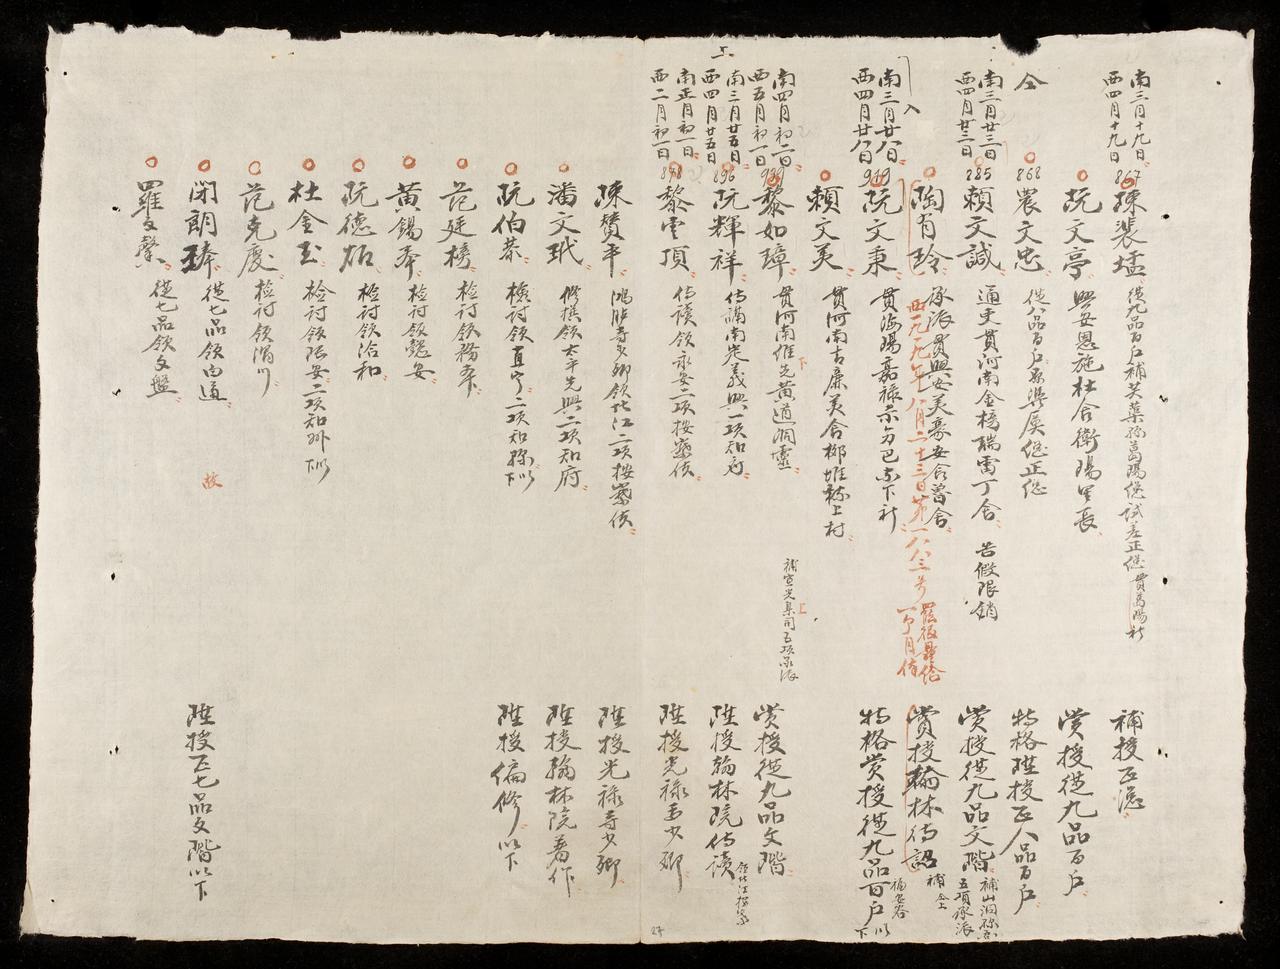 南三月十九日
西四月十九日
867
陳裴塩
從九品百戶補芙蕖孫葛陽總試差正總貫葛陽社
補授正總
阮文亭
興安恩施杜舍衛陽里長
賞授從九品百戶
仝
868
農文忠
從八品百戶
特格陞授正八品百戶
南三月廿三日
西四月廿三日
885
賴文誠
通吏貫河南金榜瑞雷丁舍 告假限銷
賞授從九品文階
補山洞
五項承派
陶有玲
承派貫興安美豪安舍普舍
西一九一九年八月二十三日第一八八三号
一个月俸
賞授翰林待詔
補
入
南三月廿八日
西四月廿八日
919
阮文秉
貫海陽嘉祿
特格賞授從九品百戶以下
賴文美
貫河南古廉美舍鄉堆上村
南四月初二日
西五月初一日
939
黎如璋
貫河南維先黃道洞靈
補宣光集司五項承派
賞授從九品文階
上
南三月廿五日
西四月廿五日
896
阮輝祥
侍講南定義興一項知府
陞授翰林院侍讀
領北江按察
南正月初一日
西二月初一日
848
黎雲頂
侍讀領永安二項按察使
陞授光祿寺少卿
陳贊平
鴻臚寺少卿領北江二項按察使
陞授光祿寺少卿
潘文珉
修撰領太平先興二項知府
陞授翰林院著作
阮伯恭
檢討領直寧二項知縣以下
陞授編修以下
范廷榜
檢討領務本
黃錫奉
檢討領懿安
阮德炻
檢討領洽和
杜金玉
檢討領限安二項知州以下
范克慶
檢討領渭川
閉朗琫
從七品領由道
故
陞授正七品文階以下
羅文馨
從七品領文盤
27